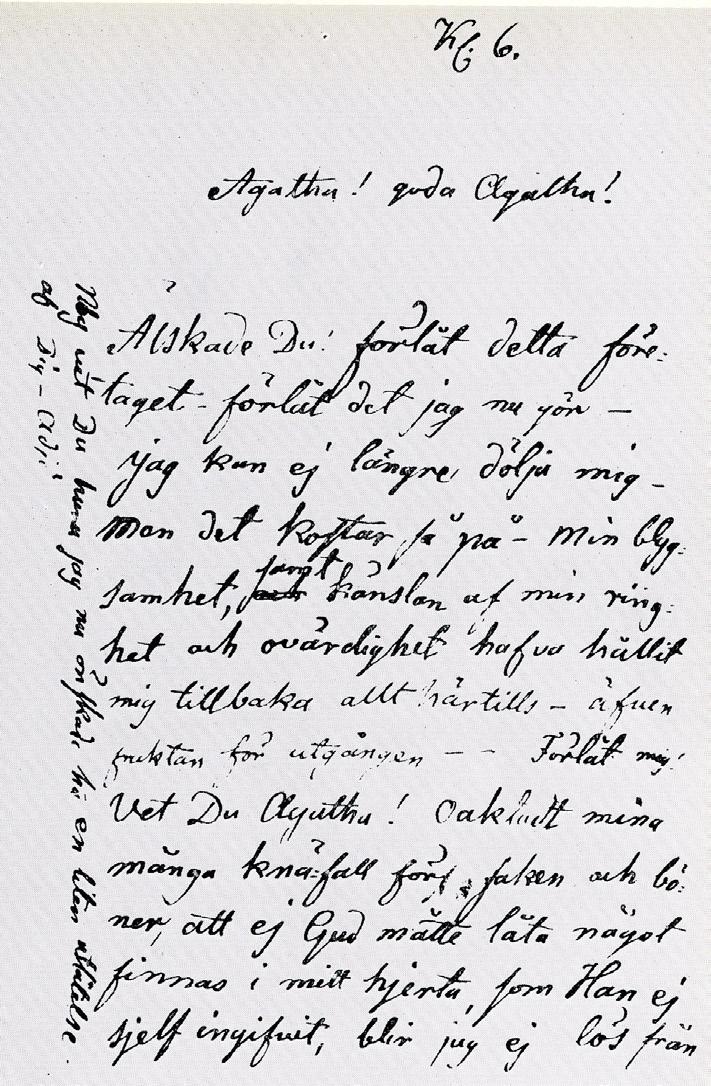 Kl. 6.
Agatha! goda Agatha!
Älskade Du! förlåt detta före:
taget - förlåt det jag nu gör -
jag kan ej längre dölja mig -
Men det kostar så på - Min blyg:
samhet, samt känslan af min ring:
het och ovärdighet hafva hållit
mig tillbaka allt härtills - äfven
fruktan för utgången - - Förlåt mig!
Vet Du Agatha! Oaktadt mina
många knäfall för saken och bö:
ner, att ej Gud måtte låta något
finnas i mitt hjerta, som Han ej
sjelf ingifvit, blir jag ej lös från
Nog vet Du huru jag nu önskade ha en liten uthållelse
af Dig - Adjö!